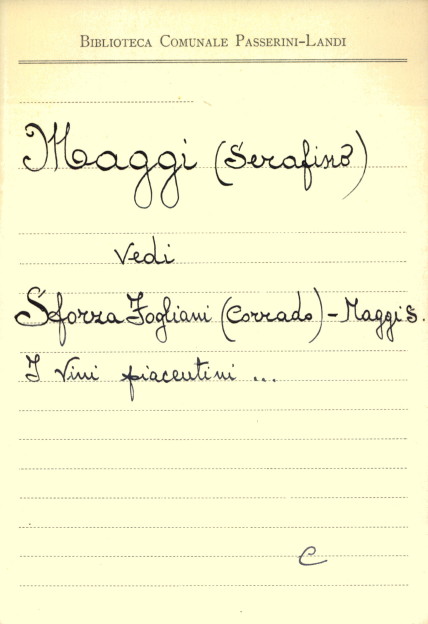 BIBLIOTECA COMUNALE PASSERINI-LANDI
Maggi (Serafino)
Vedi
Sforza Fogliani (Corrado) - Maggi S.
I vini piacentini ...
C